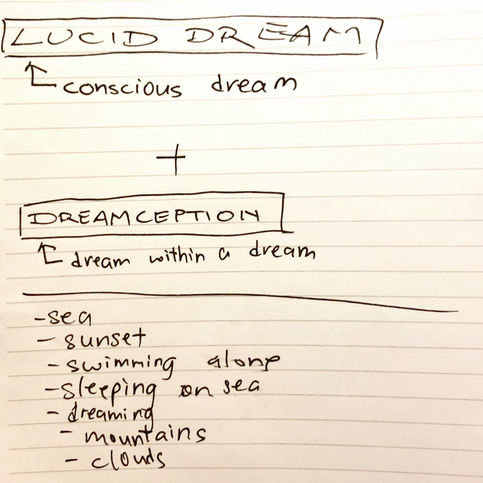 LUCID DREAM
conscious dream
+
DREAMCEPTION
dream within a dream
-sea
- sunset
- swimming alone
-sleeping on sea
- dreaming
- mountains
- clouds